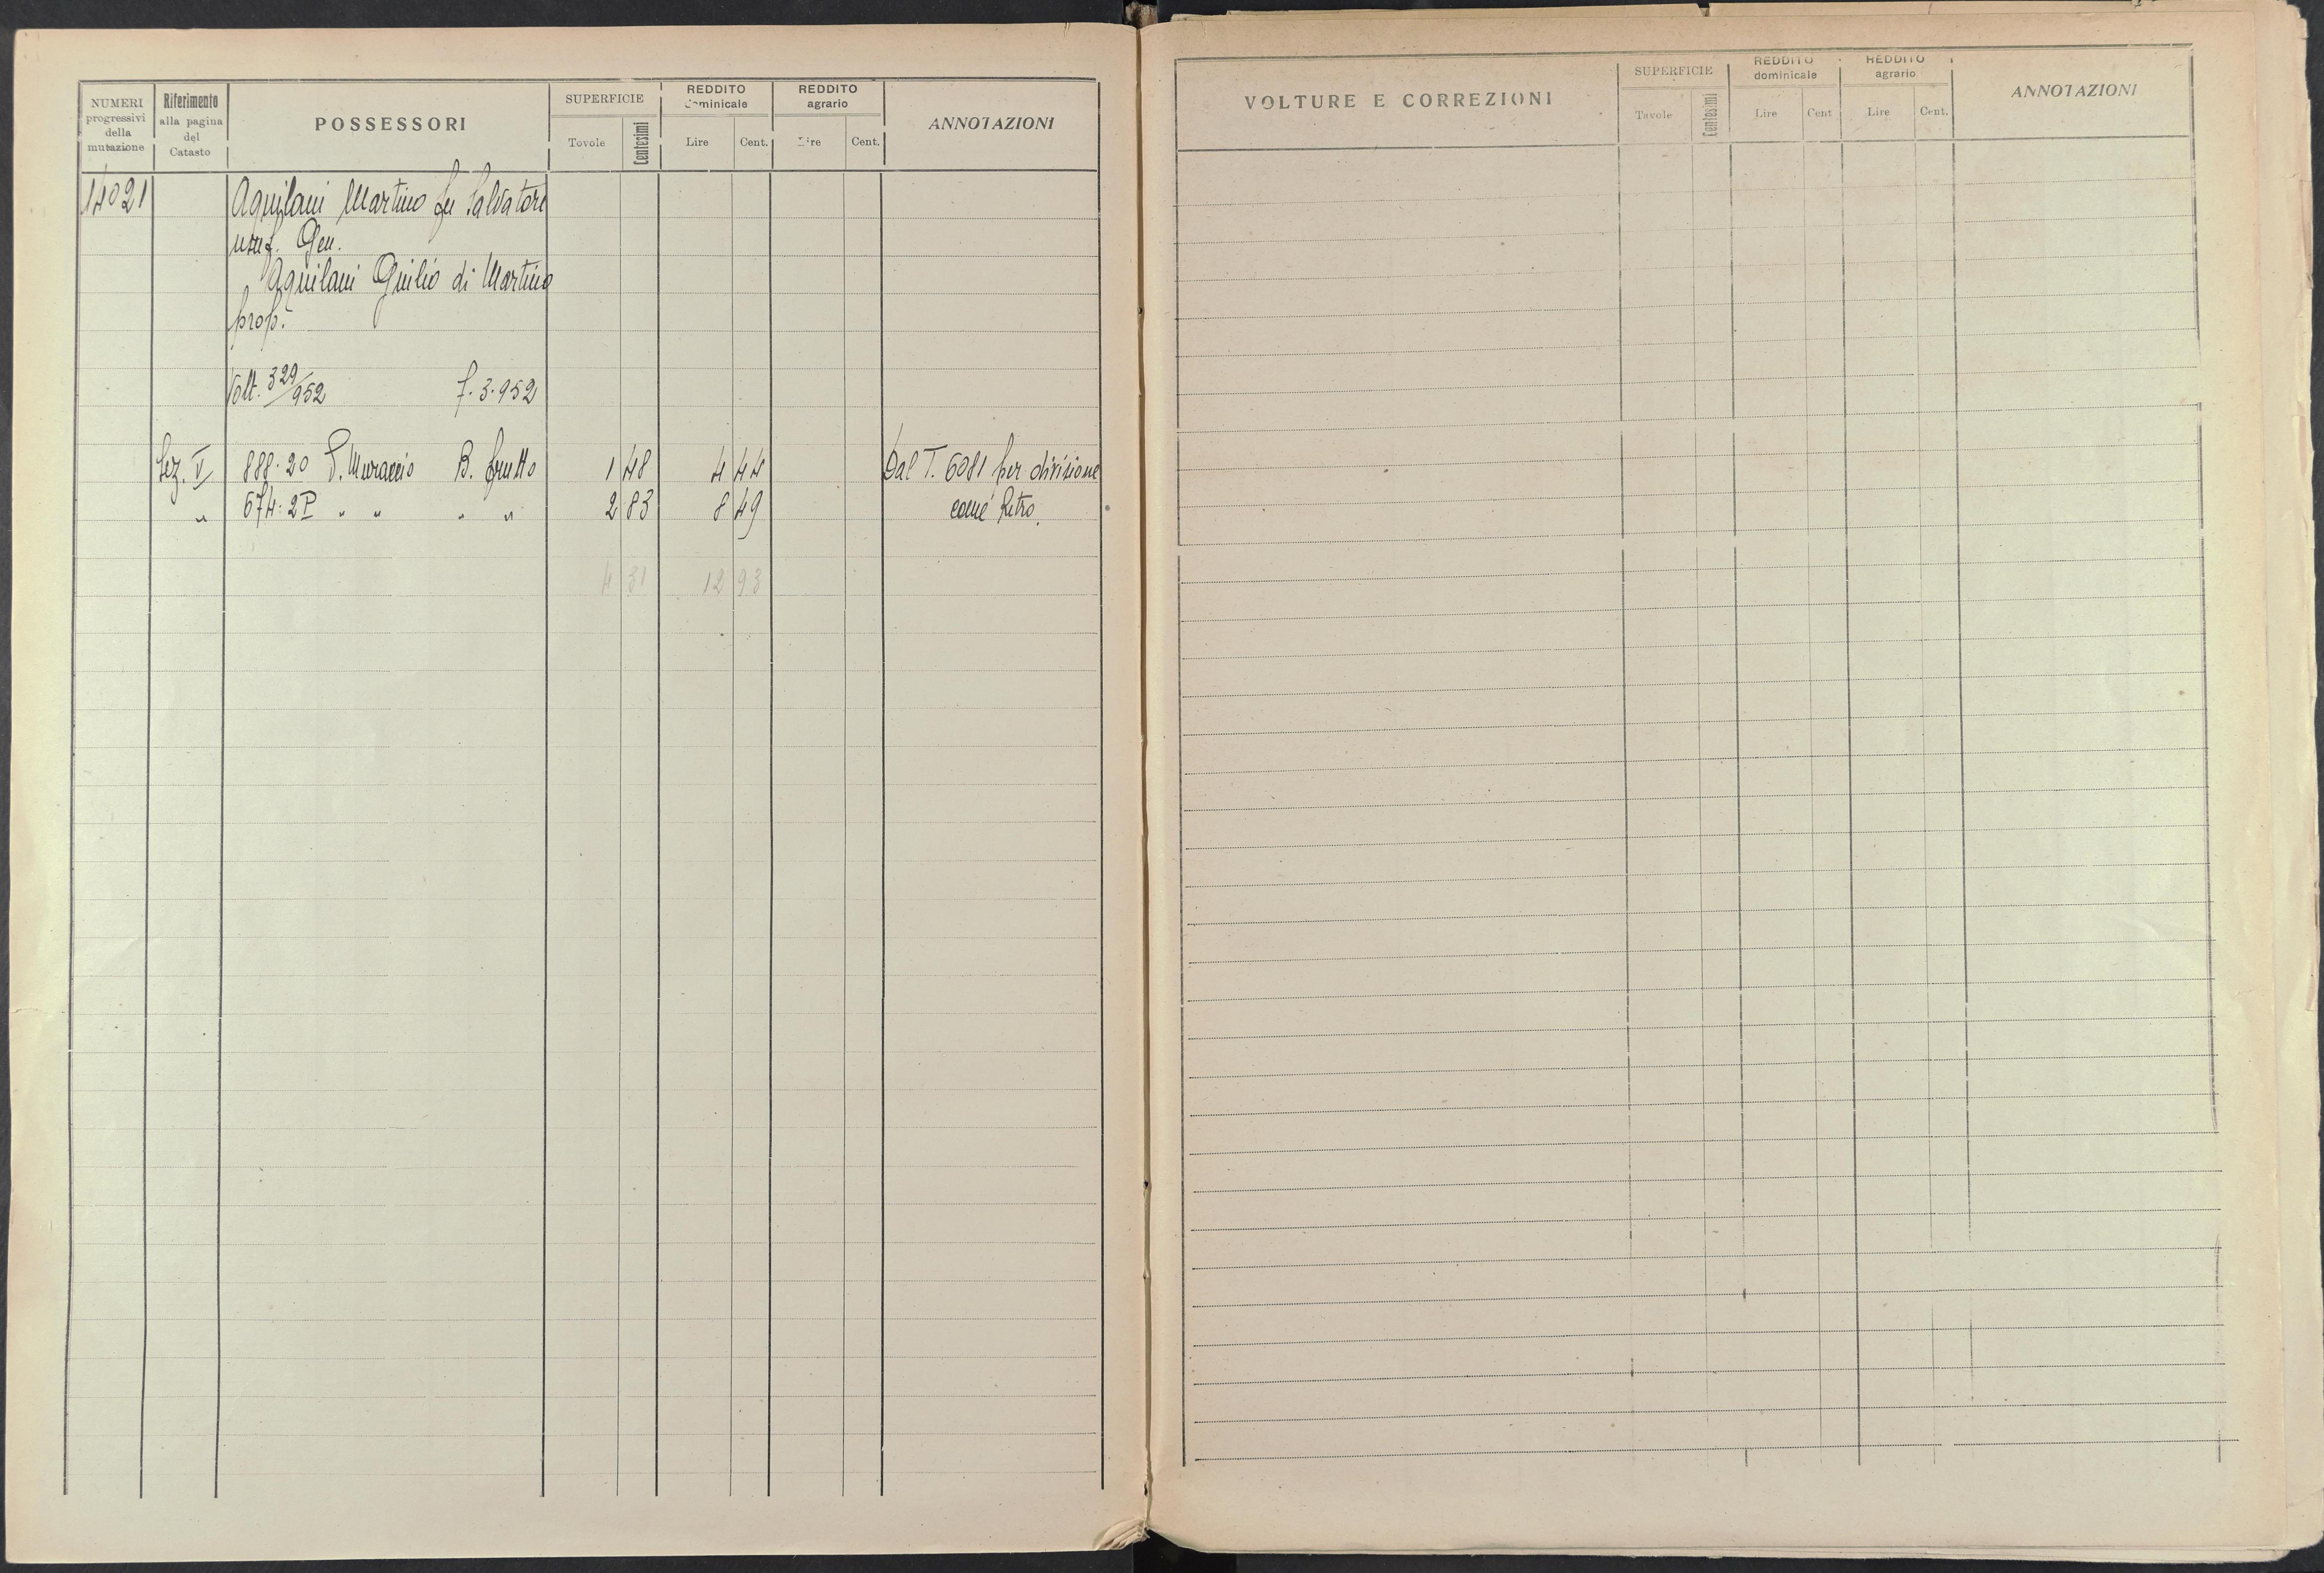 NUMERI progressivi della mutazione
Riferimento alla pagina del Catasto
POSSESSORI
SUPERFICIE
Tovole
Centesimi
REDDITO dominicale
Lire
Cent.
REDDITO agrario
Lire
Cent.
ANNOTAZIONI
14021
Aquilani Martino fu Salvatore
usuf. Gen.
Aquilani Giulio di Martino
prop.
Volt. 329/952 7.3.952
Sez. V 888.20 P. Muraccio B. frutto 1 48 4 44 Dal T. 6081 per divisione
" 674.2P " " " " 2 83 8 49 come Retro.
4 31 12 93
VOLTURE E CORREZIONI
SUPERFICIE
Tavole
Centesimi
REDDITO dominicale
Lire
Cent
REDDITO agrario
Lire
Cent.
ANNOTAZIONI